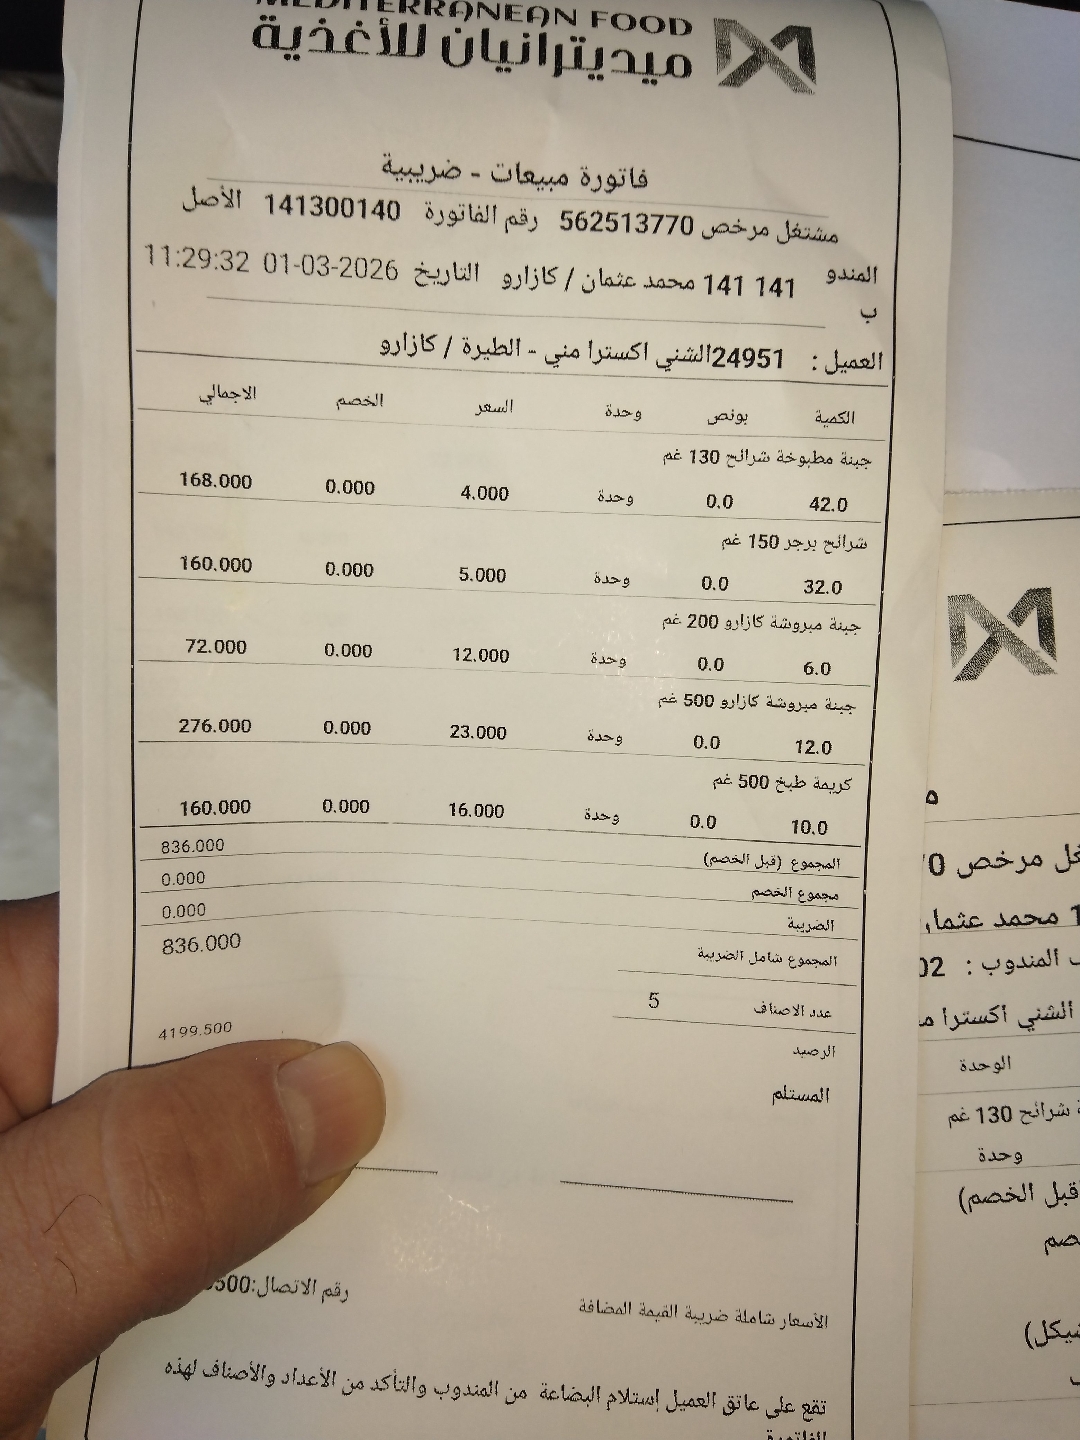 MEDITERRANEAN FOOD
ميديترانيان للأغذية
فاتورة مبيعات - ضريبية
مشتغل مرخص 562513770 رقم الفاتورة 141300140 الأصل
المندوب 141 141 محمد عثمان / كازارو التاريخ 01-03-2026 11:29:32
العميل : 24951الشني اكسترا مني - الطيرة / كازارو
الكمية بونص وحدة السعر الخصم الاجمالي
جبنة مطبوخة شرائح 130 غم
42.0 0.0 وحدة 4.000 0.000 168.000
شرائح برجر 150 غم
32.0 0.0 وحدة 5.000 0.000 160.000
جبنة مبروشة كازارو 200 غم
6.0 0.0 وحدة 12.000 0.000 72.000
جبنة مبروشة كازارو 500 غم
12.0 0.0 وحدة 23.000 0.000 276.000
كريمة طبخ 500 غم
10.0 0.0 وحدة 16.000 0.000 160.000
المجموع (قبل الخصم) 836.000
مجموع الخصم 0.000
الضريبة 0.000
المجموع شامل الضريبة 836.000
عدد الاصناف 5
الرصيد 4199.500
المستلم
رقم الاتصال:
الأسعار شاملة ضريبة القيمة المضافة
تقع على عاتق العميل إستلام البضاعة من المندوب والتأكد من الأعداد والأصناف لهذه
الفاتورة
مرخص
محمد
المندوب : 02
الشني اكسترا
الوحدة
شرائح 130 غم
وحدة
قبل الخصم)